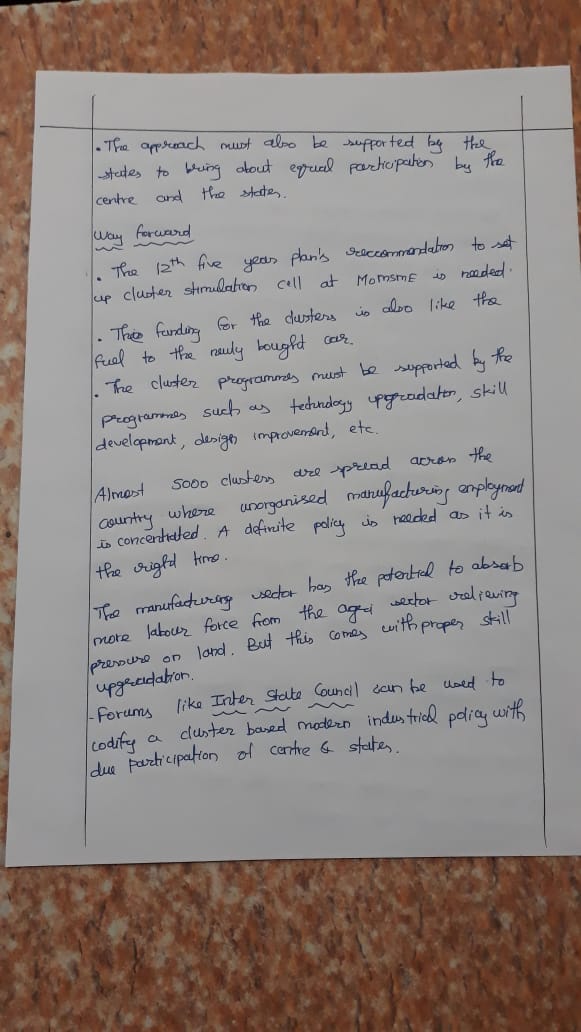 • The approach must also be supported by the
states to bring about equal participation by the
centre and the states.
Way Forward
• The 12th five years plan's reccommendation to set
up cluster stimulation cell at MoMSME is needed.
• This funding for the clusters is also like the
fuel to the newly bought car.
• The cluster programmes must be supported by the
programmes such as technology upgradation, skill
development, design improvement, etc.
Almost 5000 clusters are spread across the
country where unorganised manufacturing employment
is concentrated. A definite policy is needed as it is
the right time.
The manufacturing sector has the potential to absorb
more labour force from the agri sector relieving
pressure on land. But this comes with proper skill
upgradation.
- Forums like Inter State Council can be used to
codify a cluster based modern industrial policy with
due participation of centre & states.